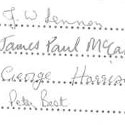 J. W. Lennon
James Paul McCar
George Harriso
Peter Best